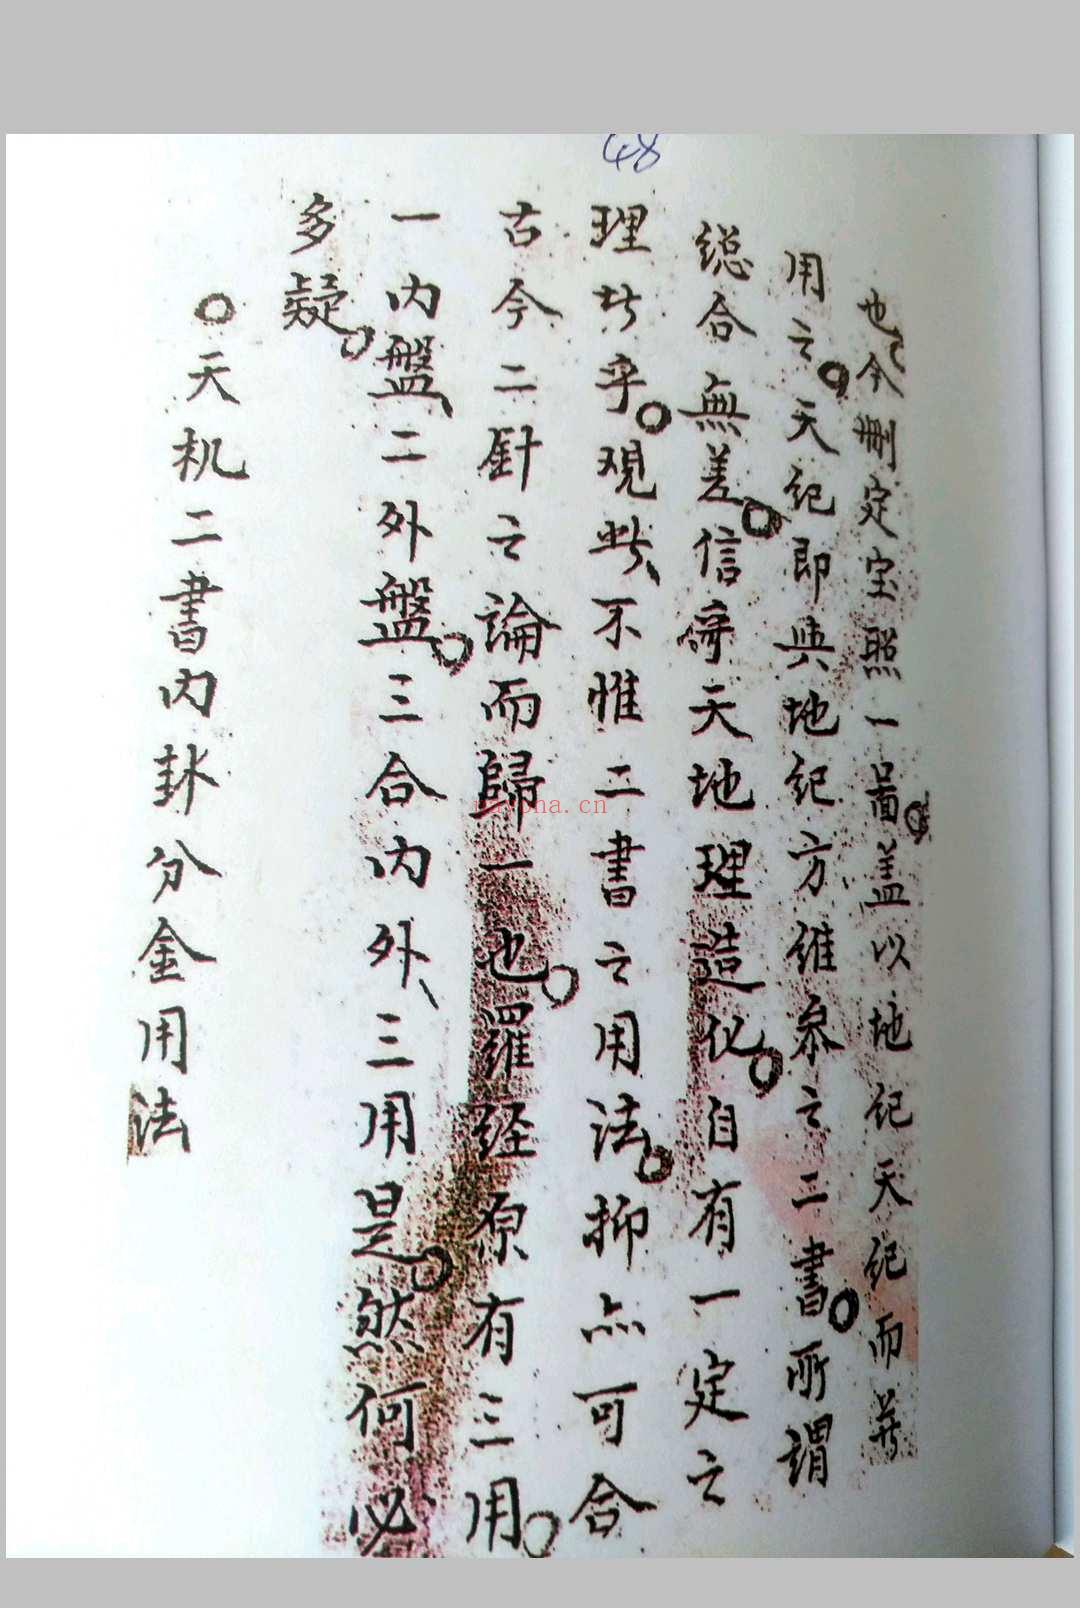 48
也、今刪定宝照一啚。盖以地纪天纪而並
用之。天纪即與地纪方維叅之二書。所謂
総合無差。信哥天地理造化。自有一定之
理扵乎。观此、不惟二書之用法。抑亦可合
古今二針之論而歸一也。羅经原有三用。
一内盤、二外盤。三合内外、三用是。然何必
多疑。
○天机二書内卦分金用法